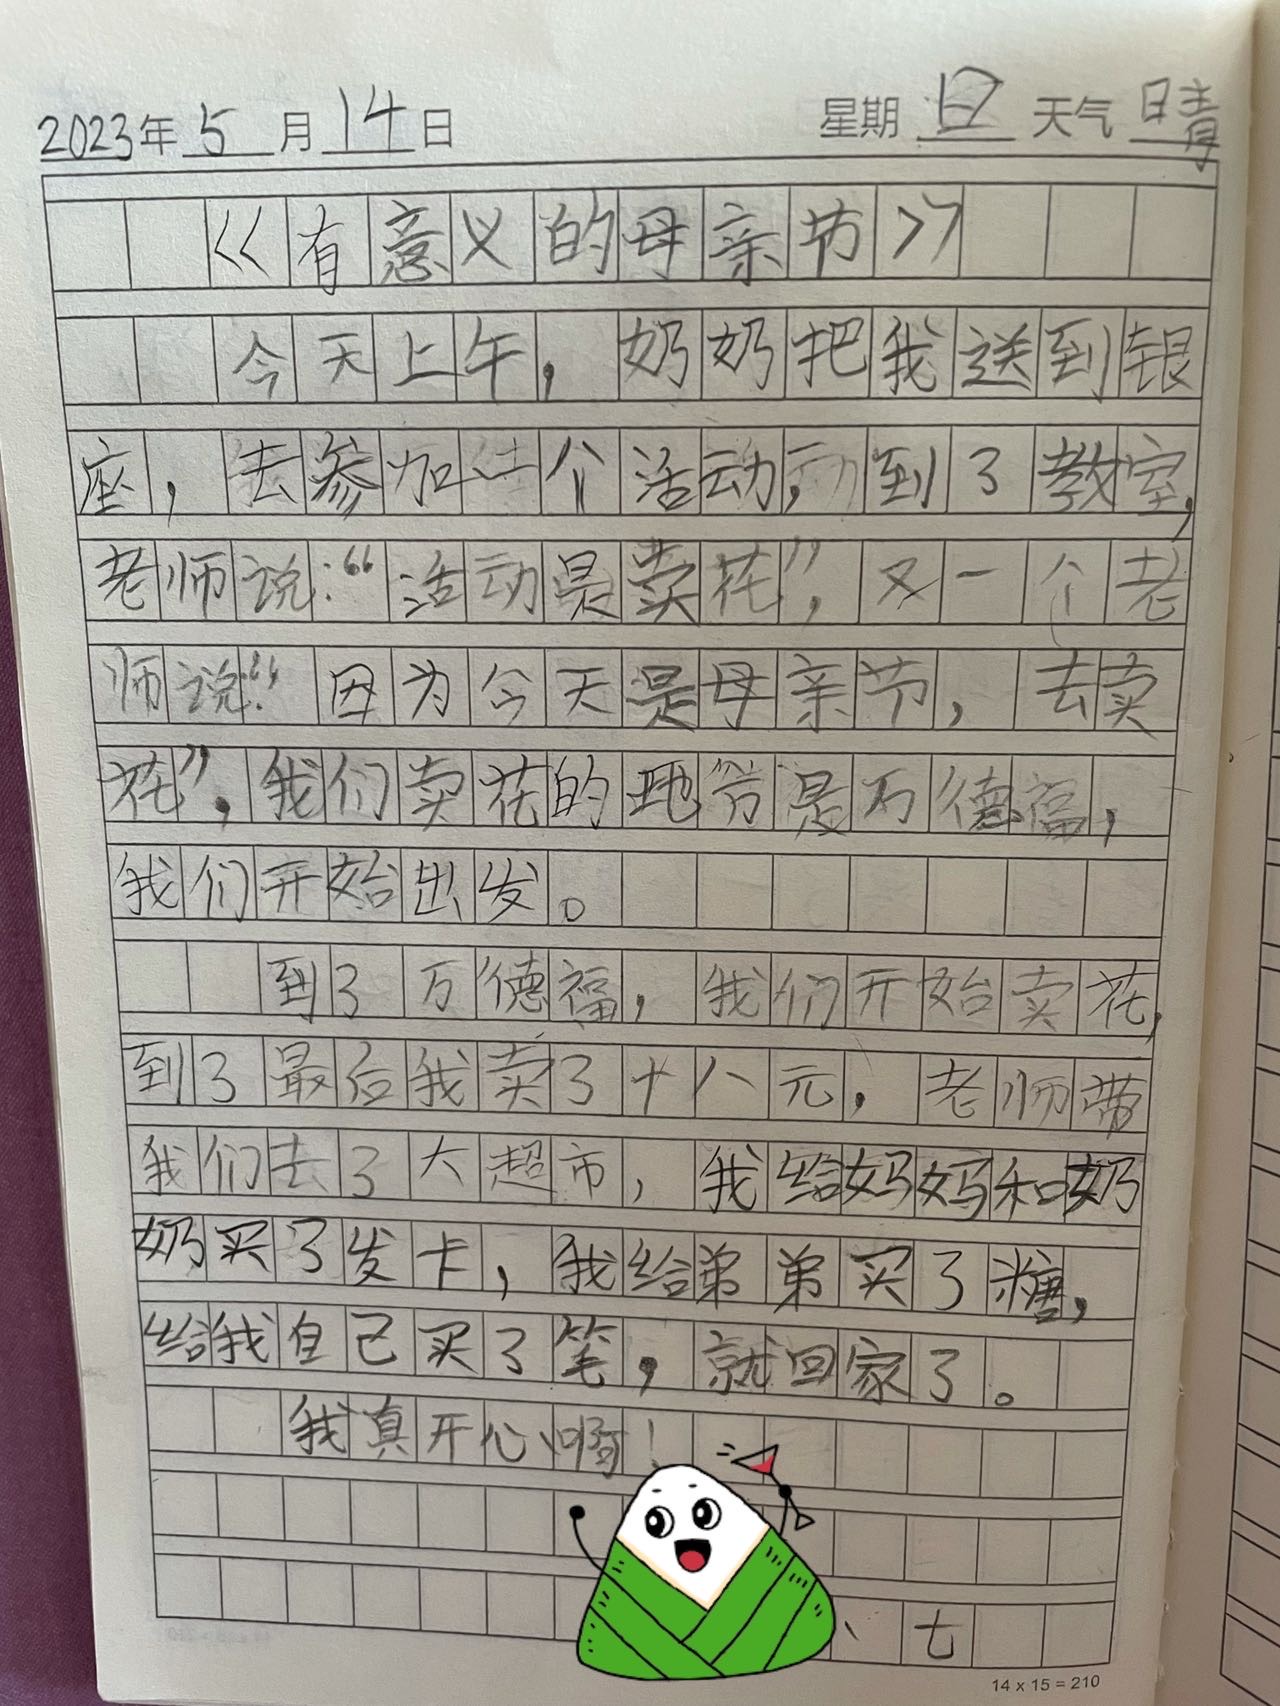 2023年5月14日 星期日 天气晴
《有意义的母亲节》
今天上午，奶奶把我送到银
座，去参加一个活动，到了教室，
老师说：“活动是卖花”，又一个老
师说：“因为今天是母亲节，去卖
花”，我们卖花的地方是万德福，
我们开始出发。
到了万德福，我们开始卖花，
到了最后我卖了十八元，老师带
我们去了大超市，我给妈妈和奶
奶买了发卡，我给弟弟买了糖，
给我自己买了笔，就回家了。
我真开心啊！
、七
14 x 15 = 210